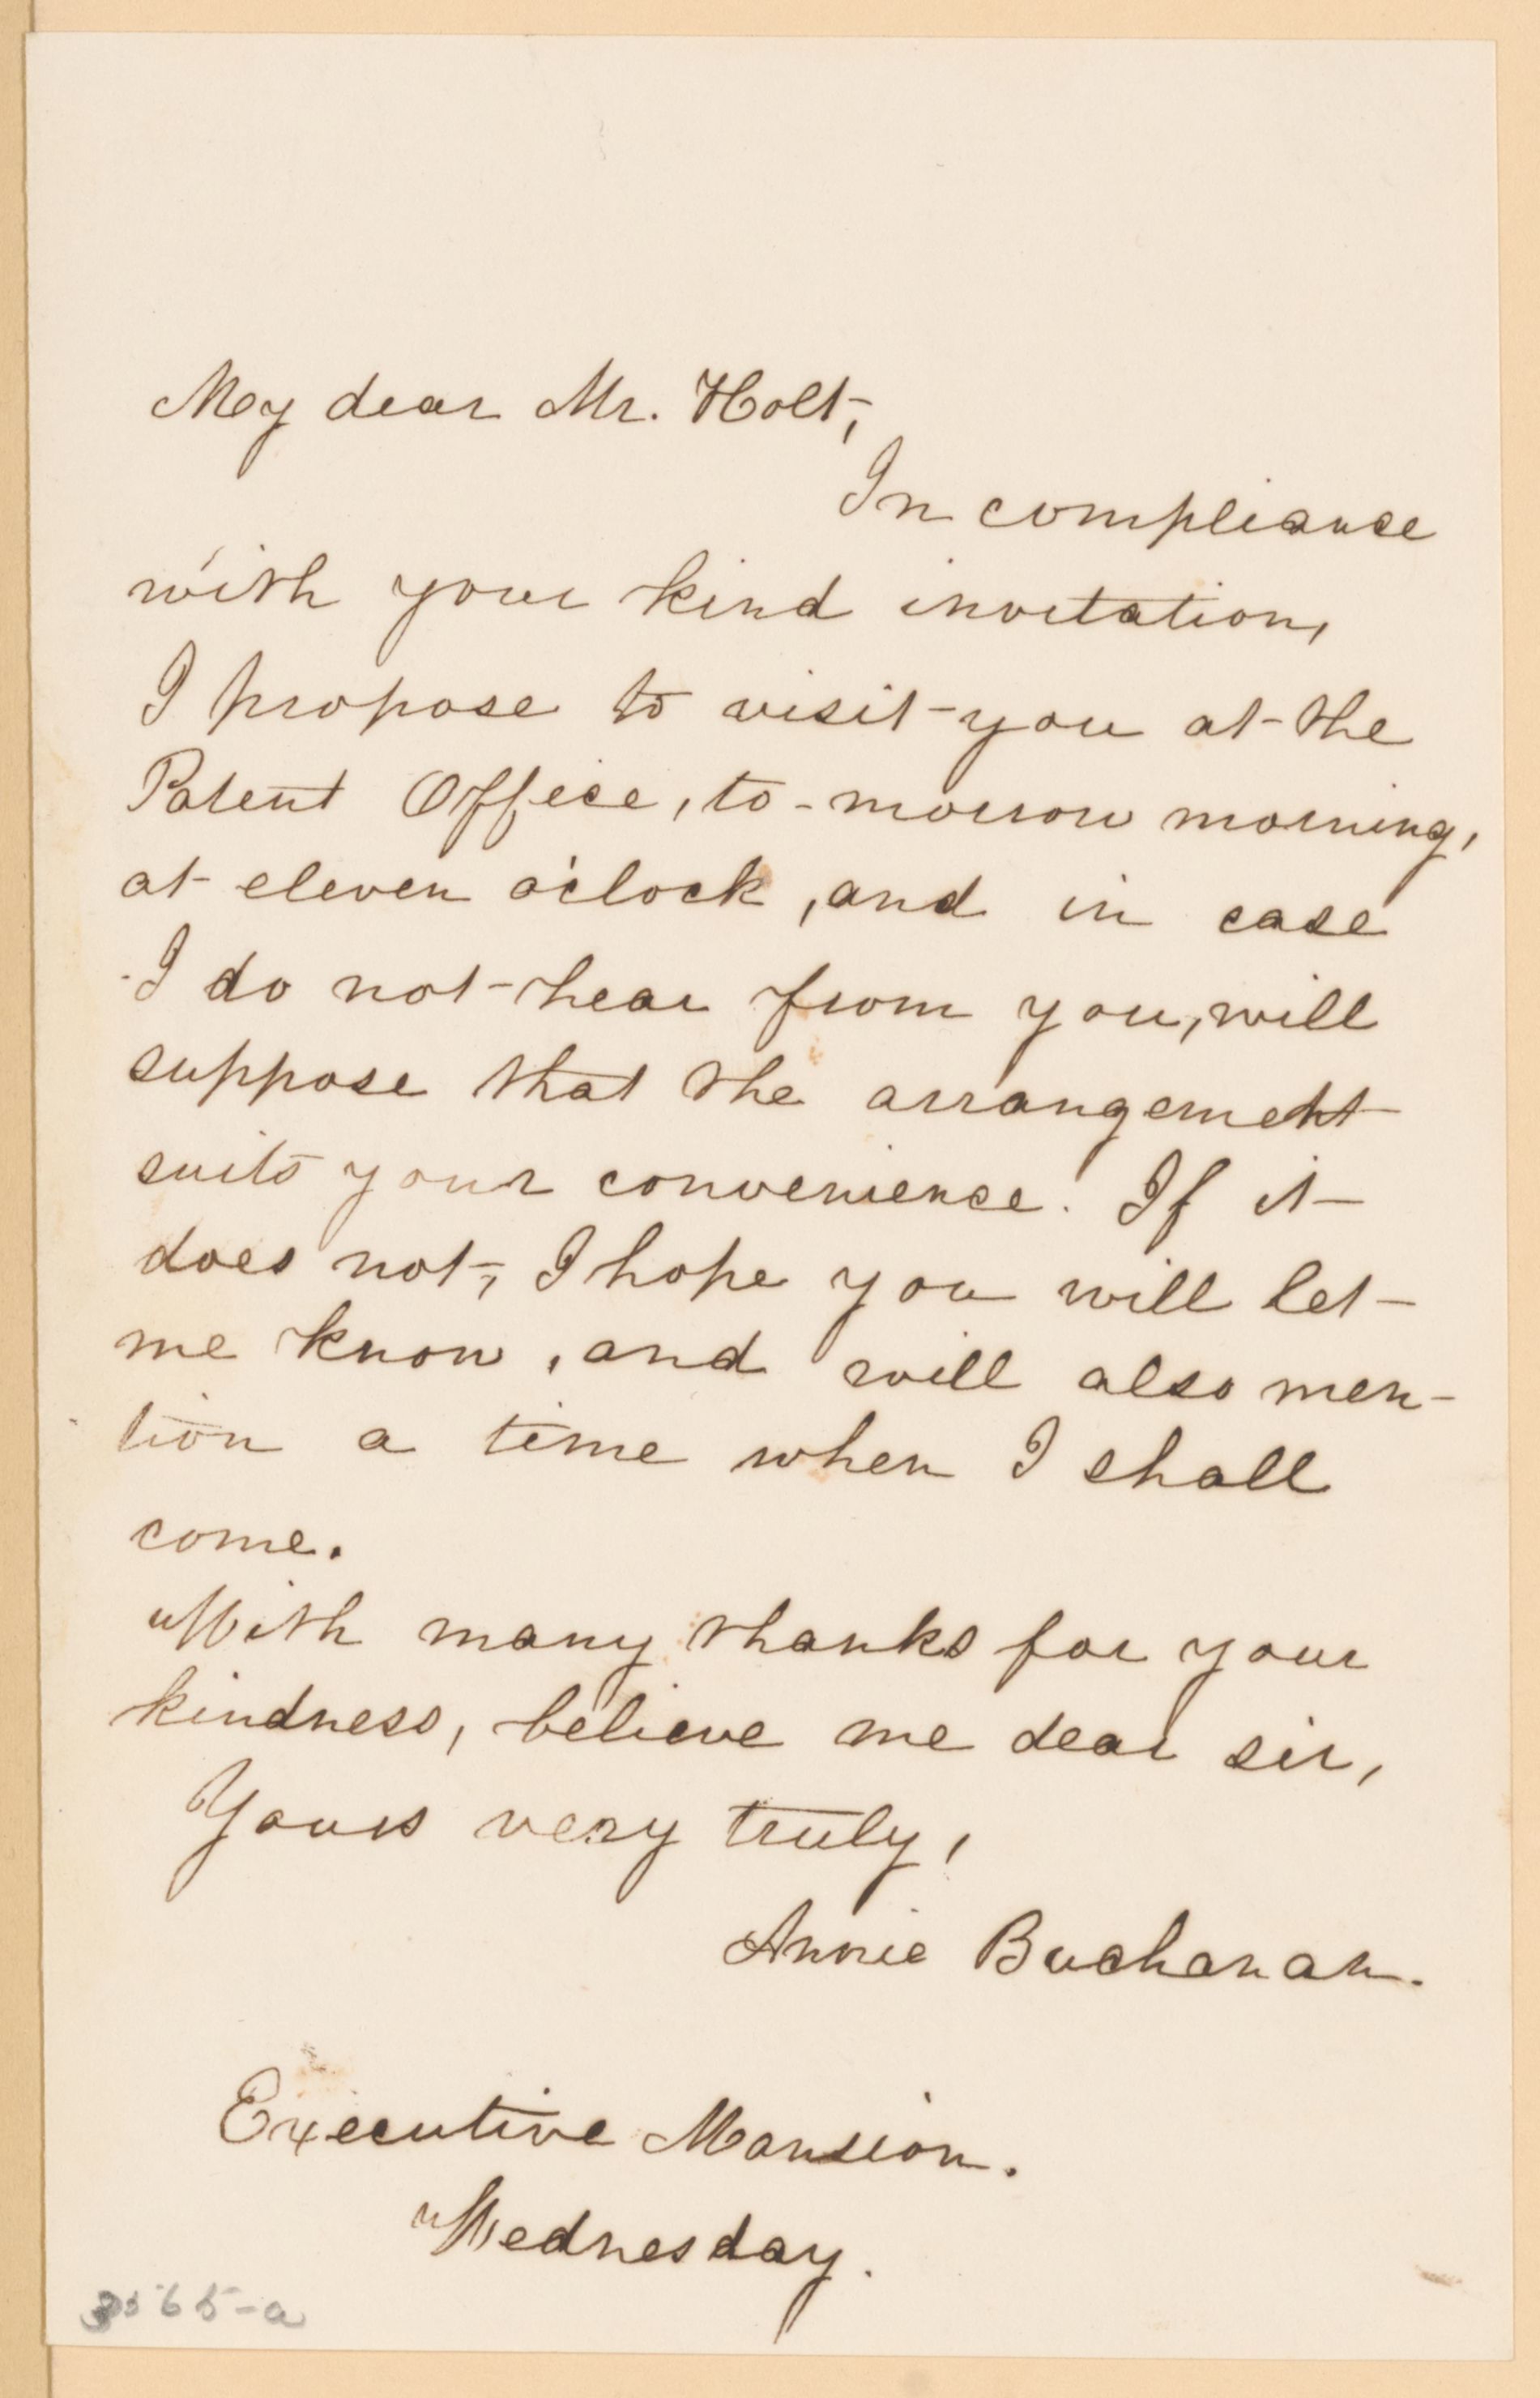 My dear Mr. Holt,
In compliance
with your kind invitation,
I propose to visit you at the
Patent Office, to-morrow morning,
at eleven o'clock, and in case
I do not hear from you, will
suppose that the arrangement
suits your convenience. If it
does not, I hope you will let
me know, and will also men-
tion a time when I shall
come.
With many thanks for your
kindness, believe me dear sir,
Yours very truly,
Annie Buchanan.
Executive Mansion.
Wednesday.